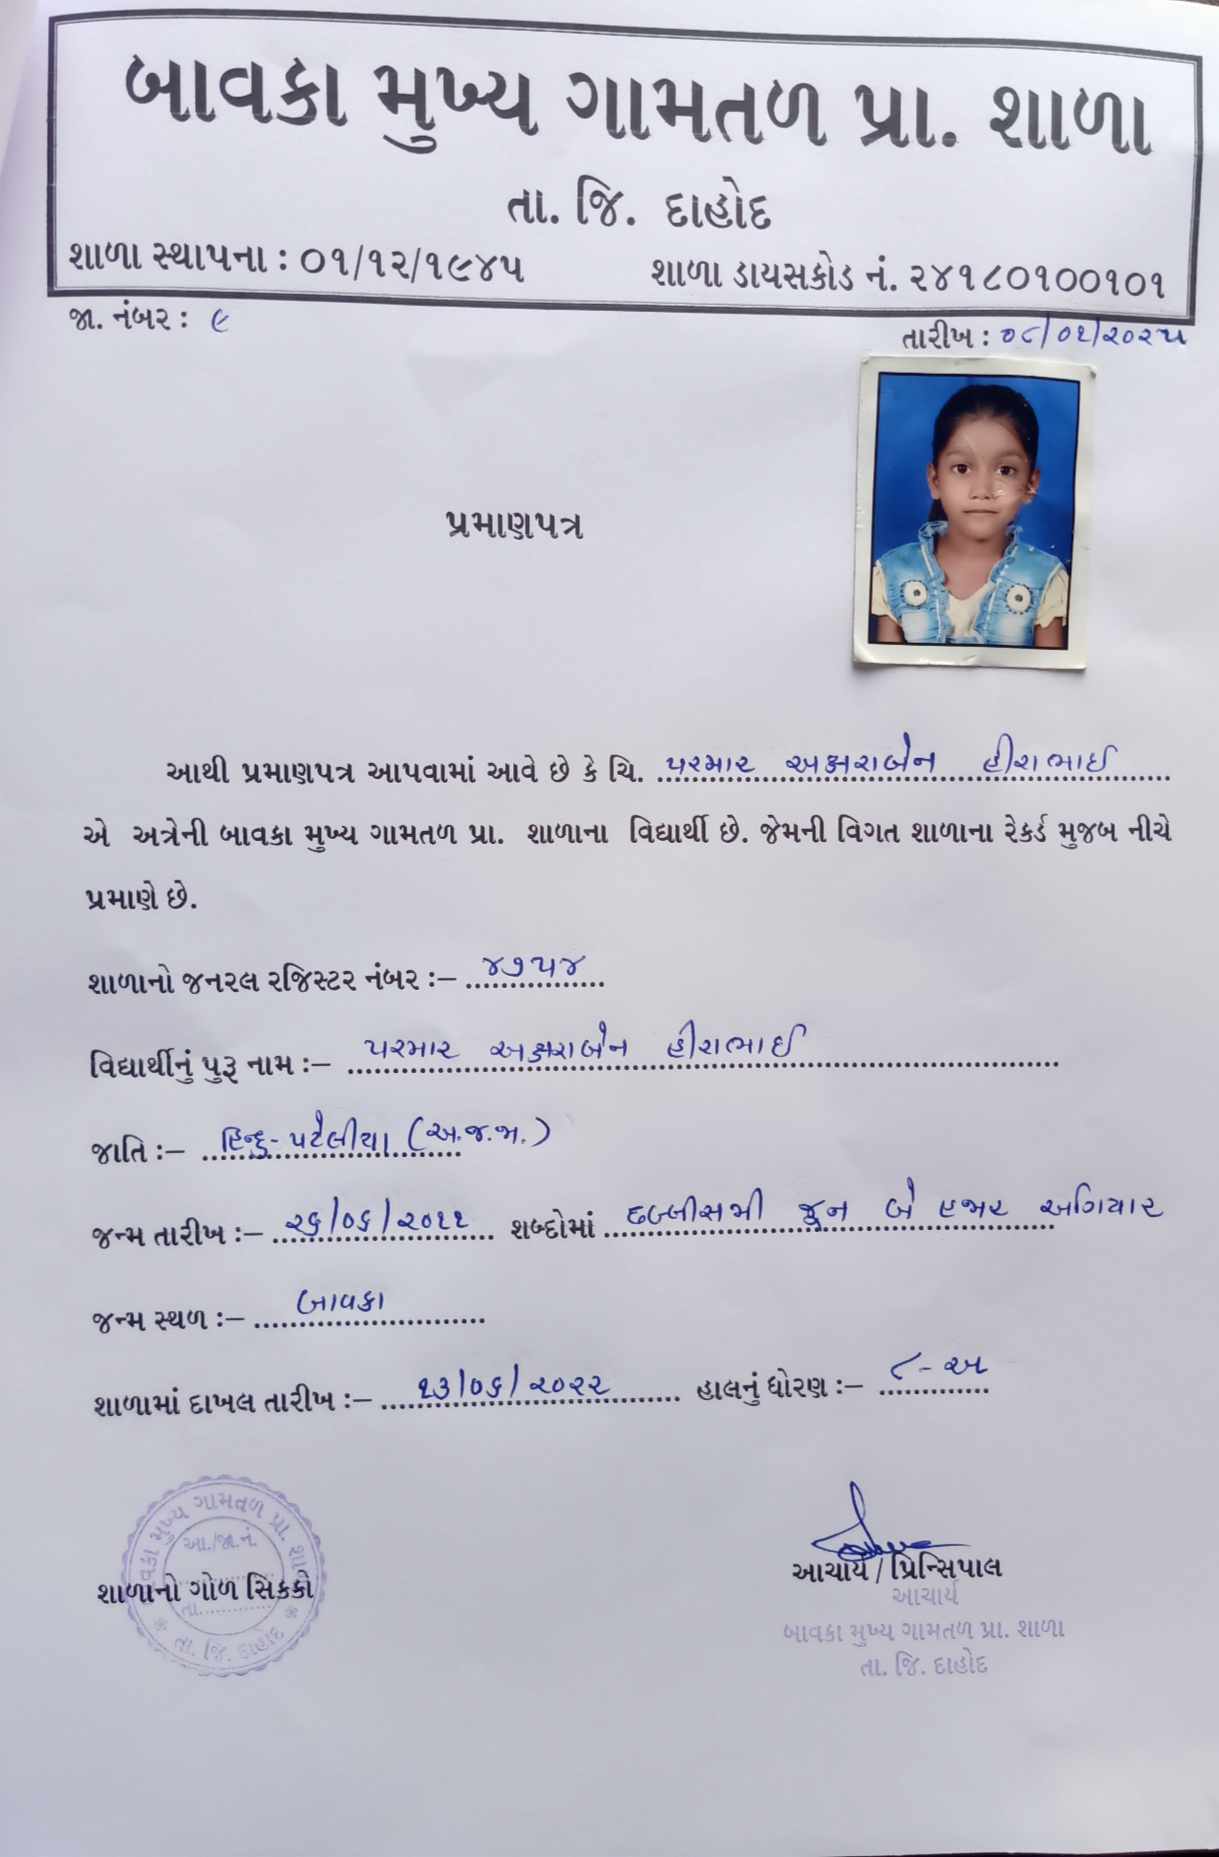 બાવકા મુખ્ય ગામતળ પ્રા. શાળા
તા. જિ. દાહોદ
શાળા સ્થાપના : ૦૧/૧૨/૧૯૪૫ શાળા ડાયસકોડ નં. ૨૪૧૮૦૧૦૦૧૦૧
જા. નંબર : ૯
તારીખ : ૦૮/૦૧/૨૦૨૫
પ્રમાણપત્ર
આથી પ્રમાણપત્ર આપવામાં આવે છે કે ચિ. પરમાર અક્ષરાબેન હીરાભાઈ
એ અત્રેની બાવકા મુખ્ય ગામતળ પ્રા. શાળાના વિદ્યાર્થી છે. જેમની વિગત શાળાના રેકર્ડ મુજબ નીચે
પ્રમાણે છે.
શાળાનો જનરલ રજિસ્ટર નંબર :– ૪૭૫૪
વિદ્યાર્થીનું પુરૂ નામ :– પરમાર અક્ષરાબેન હીરાભાઈ
જાતિ :– હિન્દુ - પટેલીયા (અ.જ.જા.)
જન્મ તારીખ :– ૨૬/૦૬/૨૦૧૧ શબ્દોમાં છવ્વીસમી જૂન બે હજાર અગિયાર
જન્મ સ્થળ :– બાવકા
શાળામાં દાખલ તારીખ :– ૧૩/૦૬/૨૦૨૨ હાલનું ધોરણ :– ૮ - અ
બાવકા મુખ્ય ગામતળ પ્રા. શાળા
આ./જા.નં.
તા.
તા. જિ. દાહોદ
શાળાનો ગોળ સિક્કો
આચાર્ય / પ્રિન્સિપાલ
આચાર્ય
બાવકા મુખ્ય ગામતળ પ્રા. શાળા
તા. જિ. દાહોદ